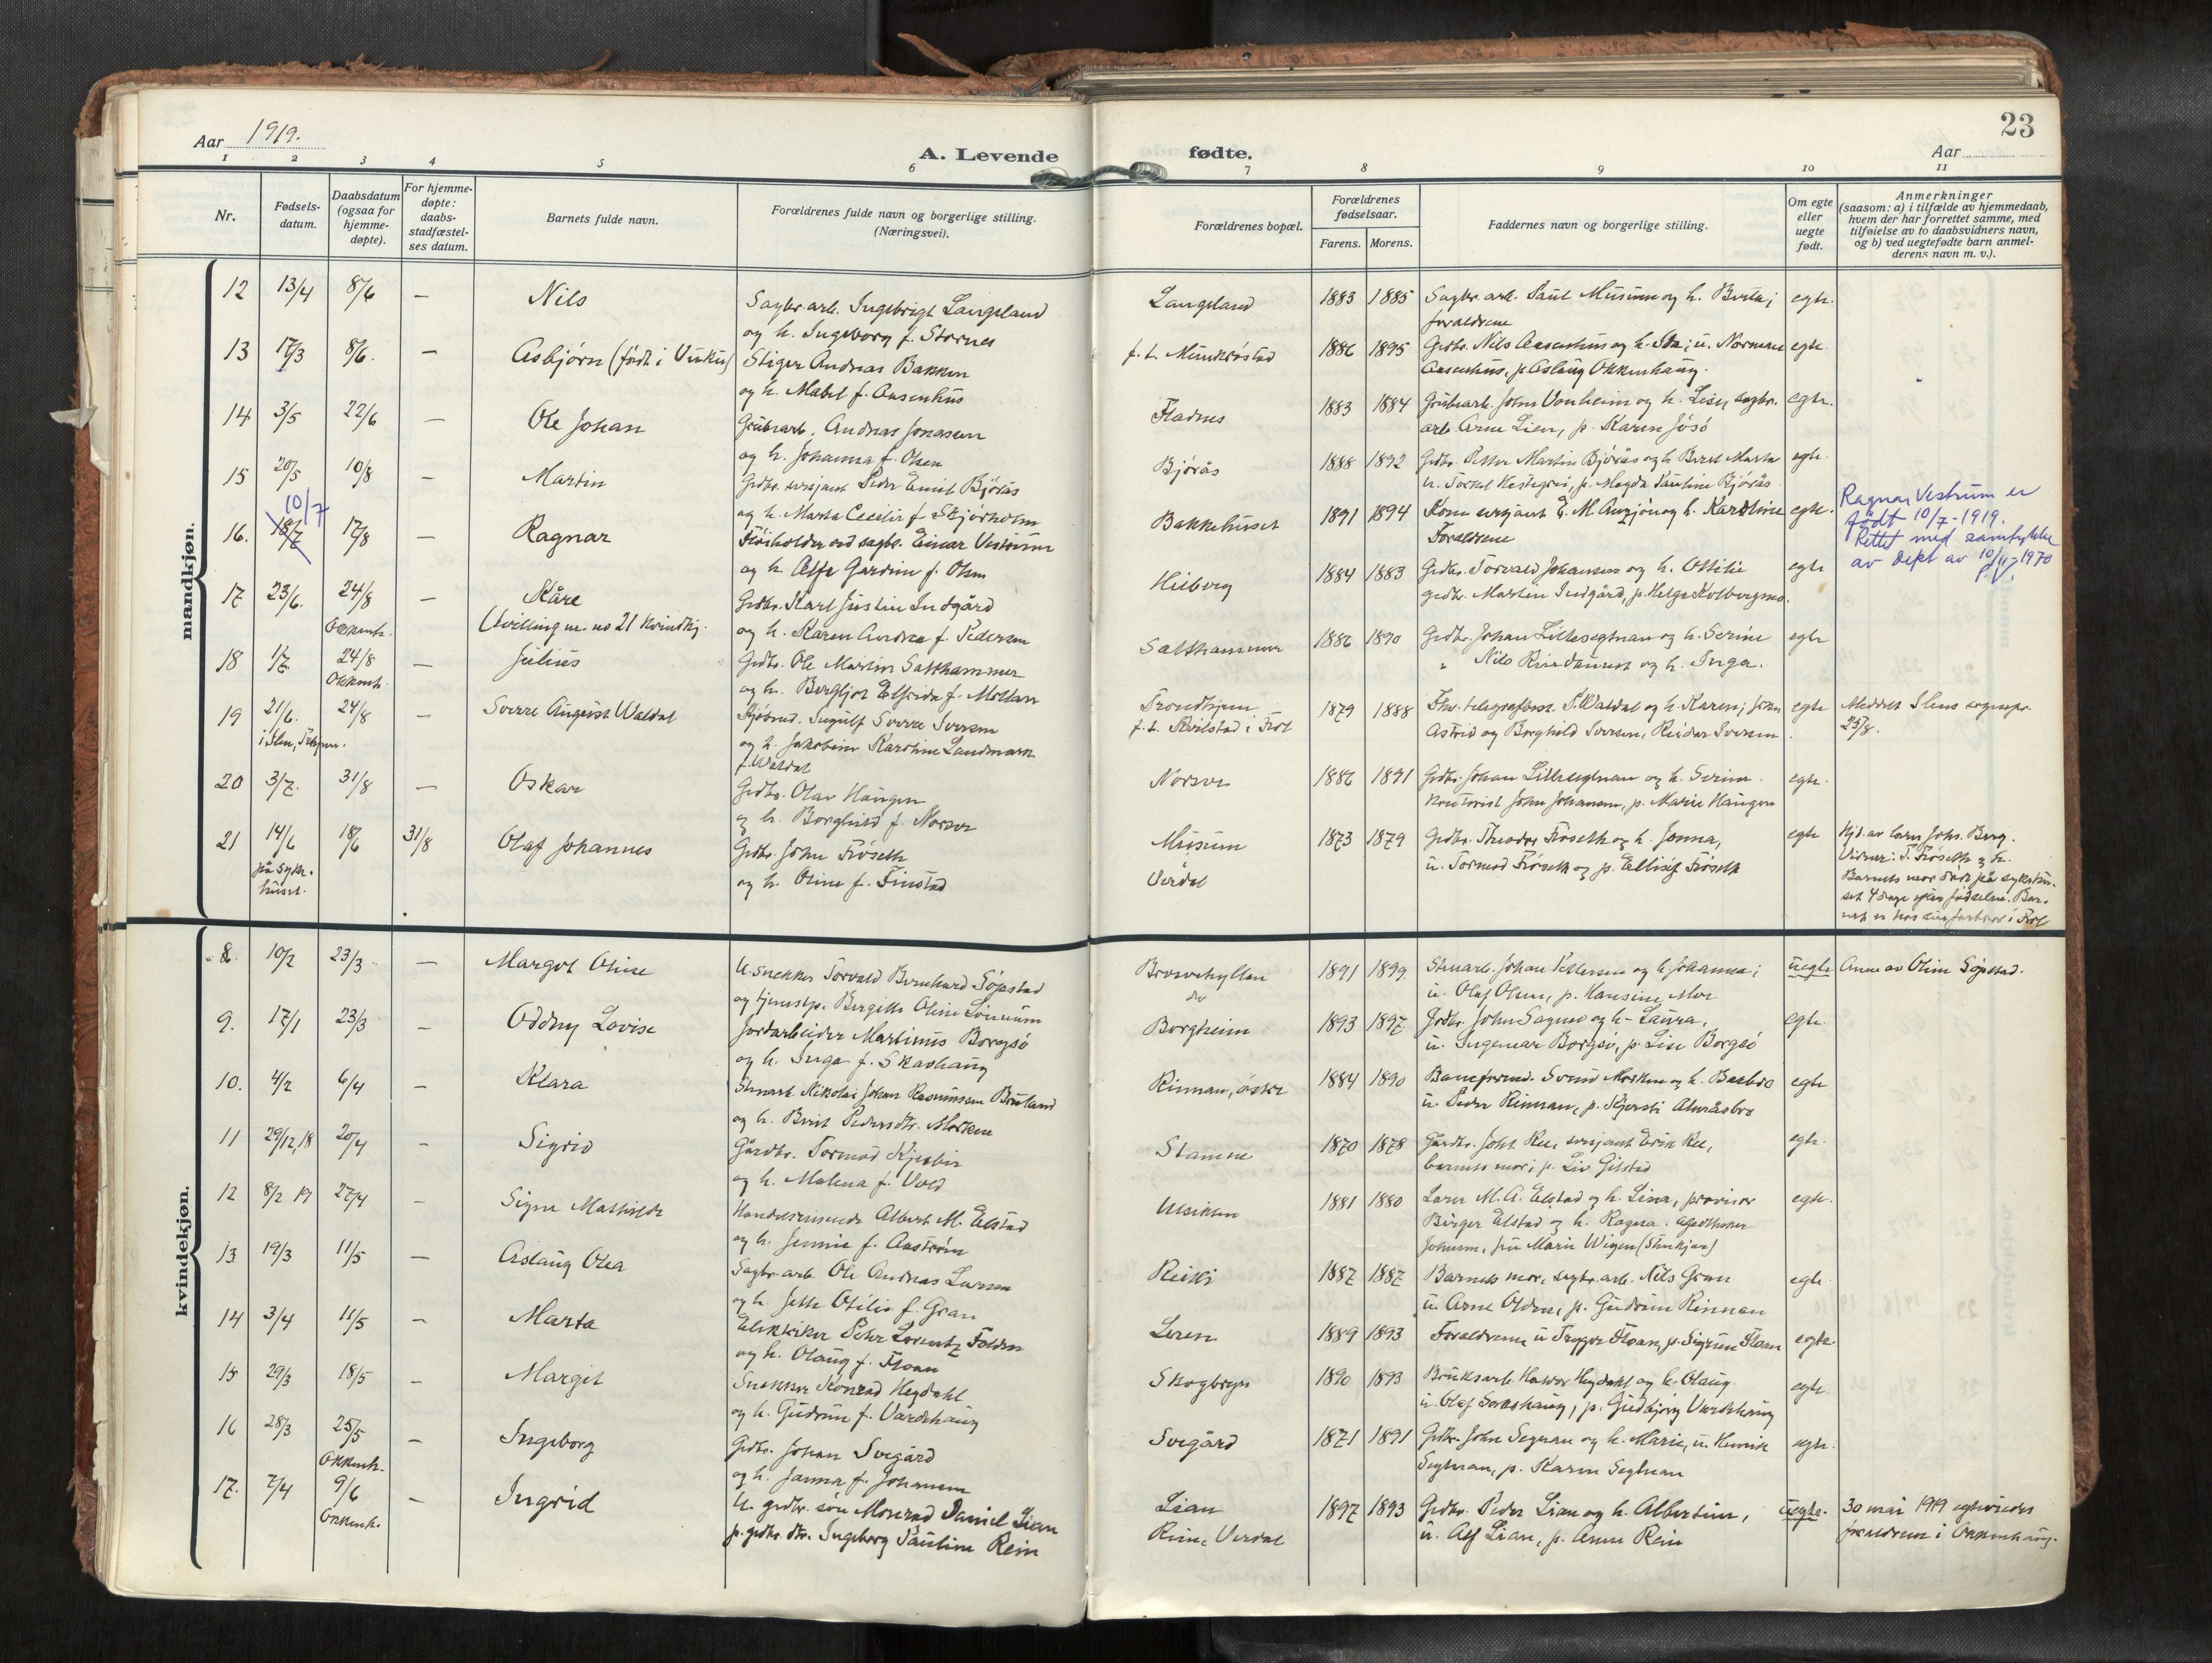 23
Aar 1919.
A. Levende fødte.
Aar
1 2 3 4 5 6 7 8 9 10 11
Nr.
Fødsels-
datum.
Daabsdatum
(ogsaa for
hjemme-
døpte).
For hjemme-
døpte:
daabs-
stadfæstel-
ses datum.
Barnets fulde navn.
Forældrenes fulde navn og borgerlige stilling.
(Næringsvei).
Forældrenes bopæl.
Forældrenes
fødselsaar.
Farens. Morens.
Faddernes navn og borgerlige stilling.
Om egte
eller
uegte
født.
Anmerkninger
(saasom: a) i tilfælde av hjemmedaab,
hvem der har forrettet samme, med
tilføielse av to daabsvidners navn,
og b) ved uegtefødte barn anmel-
derens navn m. v.).
mandkjøn.
12 13/4 8/6 — Nils Sagbr.arb. Ingebrigt Langeland Langeland 1883 1885 Sagbr. arb. Paul Musum og h. Berta; egte.
og h. Ingeborg f. Stornes forældrene
13 17/3 8/6. — Asbjørn (født i Vinku) Stiger Andreas Bakken f. t. 1886 1895 Grdbr. Nils Aasenhus og h. u. Norman egte.
og h. Mabel f. Aasenhus Aasenhus, p. Aslaug Okkenhaug.
14 3/5 22/6 — Ole Johan Grubearb. Andreas Jonassen Fladnes 1883 1884 Grubearb. John Vonheim og h. Lisy sagbr. egte.
og h. Johanna f. Olsen arb. Arne Lien, p. Karen Jösö
15 20/5 10/8 — Martin Grdbr. sersjant Peder Emil Bjørås Bjørås 1888 1892 Grdbr. Petter Martin Bjørås og h. Beret Marta egte.
og h. Marta Cecilie f. Skjørholm u. Torkel Hestegrei, p. Magda Pauline Bjørås
10/7
16. 18/7 17/8 — Ragnar ved sagbr. Einar Vestrum Bakkehuset 1891 1894 sersjant E. M. og h. egte.
og h. f. Olsen Forældrene
Ragnar Vestrum er
født 10/7-1919.
Rettet med samtykke
av dept av 10/11-1970
17 23/6. 24/8 — Kåre Grdbr. Karl Justin Indgård Heiberg 1884 1883 Grdbr. Torvald Johansen og h. Ottilie egte
Okkenh. (tvilling m. no 21 kvindkj. og h. Karen Andrea f. Pedersen grdbr. Martin Indgård, p. Helga Kolbergmo.
18 1/7 24/8 — Julius Grdbr. Ole Martin Salthammer Salthammer 1886 1890 Grdbr. Johan Lillesegtnan og h. Serine egte
Okkenh. og h. Bergljot Elfrida f. Mettan " Nils og h. Inga.
19 21/6. 24/8 — Sverre August Waldal Ingulf Sverre Iversen Trondhjem 1879 1888 telegrafbest. P. Waldal og h. Karen; egte Meddelt Ilens sognepr.
i Ilen, og h. Jakobine Karoline Landmark f. t. i Frol Astrid og Borghild Iversen, Reidar Iversen 25/8.
f. Waldal
20 3/7. 31/8 — Oskar Grdbr. Olav Haugen Norsve 1886 1891 Grdbr. Johan Lillesegtnan og h. Serine egte.
og h. Borghild f. Norsve Kontorist John Johansen, p. Marie Haugen
21 14/6 18/6 31/8 Olaf Johannes Grdbr. John Frøseth Musum 1873 1879 Grdbr. Theodor Frøseth og h. Jonna, egte Hjd. av lærer Johs. Berg.
på syke- og h. Oline f. Finstad Verdal u. Tormod Frøseth og p. Ellisif Frøseth Vidner: T. Frøseth og h.
huset. Barnets mor død på sykehu-
set 4 dage efter fødselen. Bar-
net er hos sin farbror i Frol
kvindekjøn.
8. 10/2 23/3 — Margot Oline U. snekker Torvald Bernhard Søpstad 1891 1899 Stenarb. Johan Pettersen og h. Johanna; uegte Anm. av Oline Søpstad.
og tjenestp. Bergitte Oline u. Olaf Olsen, p. Hansine Moe
9. 17/1 23/3 — Oddny Lovise Jordarbeider Martinus Borgsö Borgheim 1893 1897 Grdbr. John Sagmo og h. Laura, egte.
og h. Inga f. Skavhaug u. Ingemar Borgsö, p. Lise Borgsö
10. 4/2 6/4 — Klara Stenarb. Nikolai Johan Rasmussen Bruland Rinnan, østre 1884 1890 Baneformd. Svend Morken og h. Barbro egte
og h. Berit Pedersdtr. Morken u. Peder Rinnan, p. Kjersti Almåsbro
11 29/12,18 20/4 — Sigrid Gårdbr. Tormod Kjesbu Stamne 1870 1878 Gårdbr. John Ree, sersjant Erik Ree, egte.
og h. Malena f. Vold barnets mor; p. Liv Gilstad
12 8/2 19 27/4 — Signe Mathilde Handelsreisende Albert M. Elstad 1881 1880 Lærer M. A. Elstad og h. Lina, provisor egte.
og h. Jennie f. Aastrøm Birger Elstad og h. Ragna. apotheker
Johnsen, fru Marie Wigen (Stenkjær)
13 19/3 11/5 — Aslaug Olea Sagbr.arb. Ole Andreas Larsen 1887 1887 Barnets mor, sagbr.arb. Nils Gran egte
og h. Jette Otilie f. Gran u. Arne Olden, p. Gudrun Rinnan
14 3/4 11/5 — Marta Elektriker Peter Lorentz Folden Leren 1889 1893 Forældrene u. Trygve Floan, p. Sigrun Floan egte.
og h. Olaug f. Floan
15 29/3 18/5 — Margit Snekker Konrad Hegdahl Skogbryn 1890 1893 Bruksarb. Hegdahl og h. Olaug egte
og h. Gudrun f. Vardehaug u. Olaf p. Gudbjørg Vardehaug
16 28/3 25/5 — Ingeborg Grdbr. Johan Svegård Svegård 1871 1891 Grdbr. John Segtnan og h. Marie, u. Henrik egte.
Okkenh. og h. Janna f. Johansen Segtnan, p. Karen Segtnan
17. 7/4 9/6 — Ingrid U. grdbr. søn Monrad Daniel Lian Lian 1897 1893 Grdbr. Peder Lian og h. Albertine, uegte. 30 mai 1919 egteviedes
Okkenh. p. grdbr. dtr. Ingeborg Pauline Rein Verdal u. Alf Lian, p. Anne Rein forældrene i Okkenhaug.